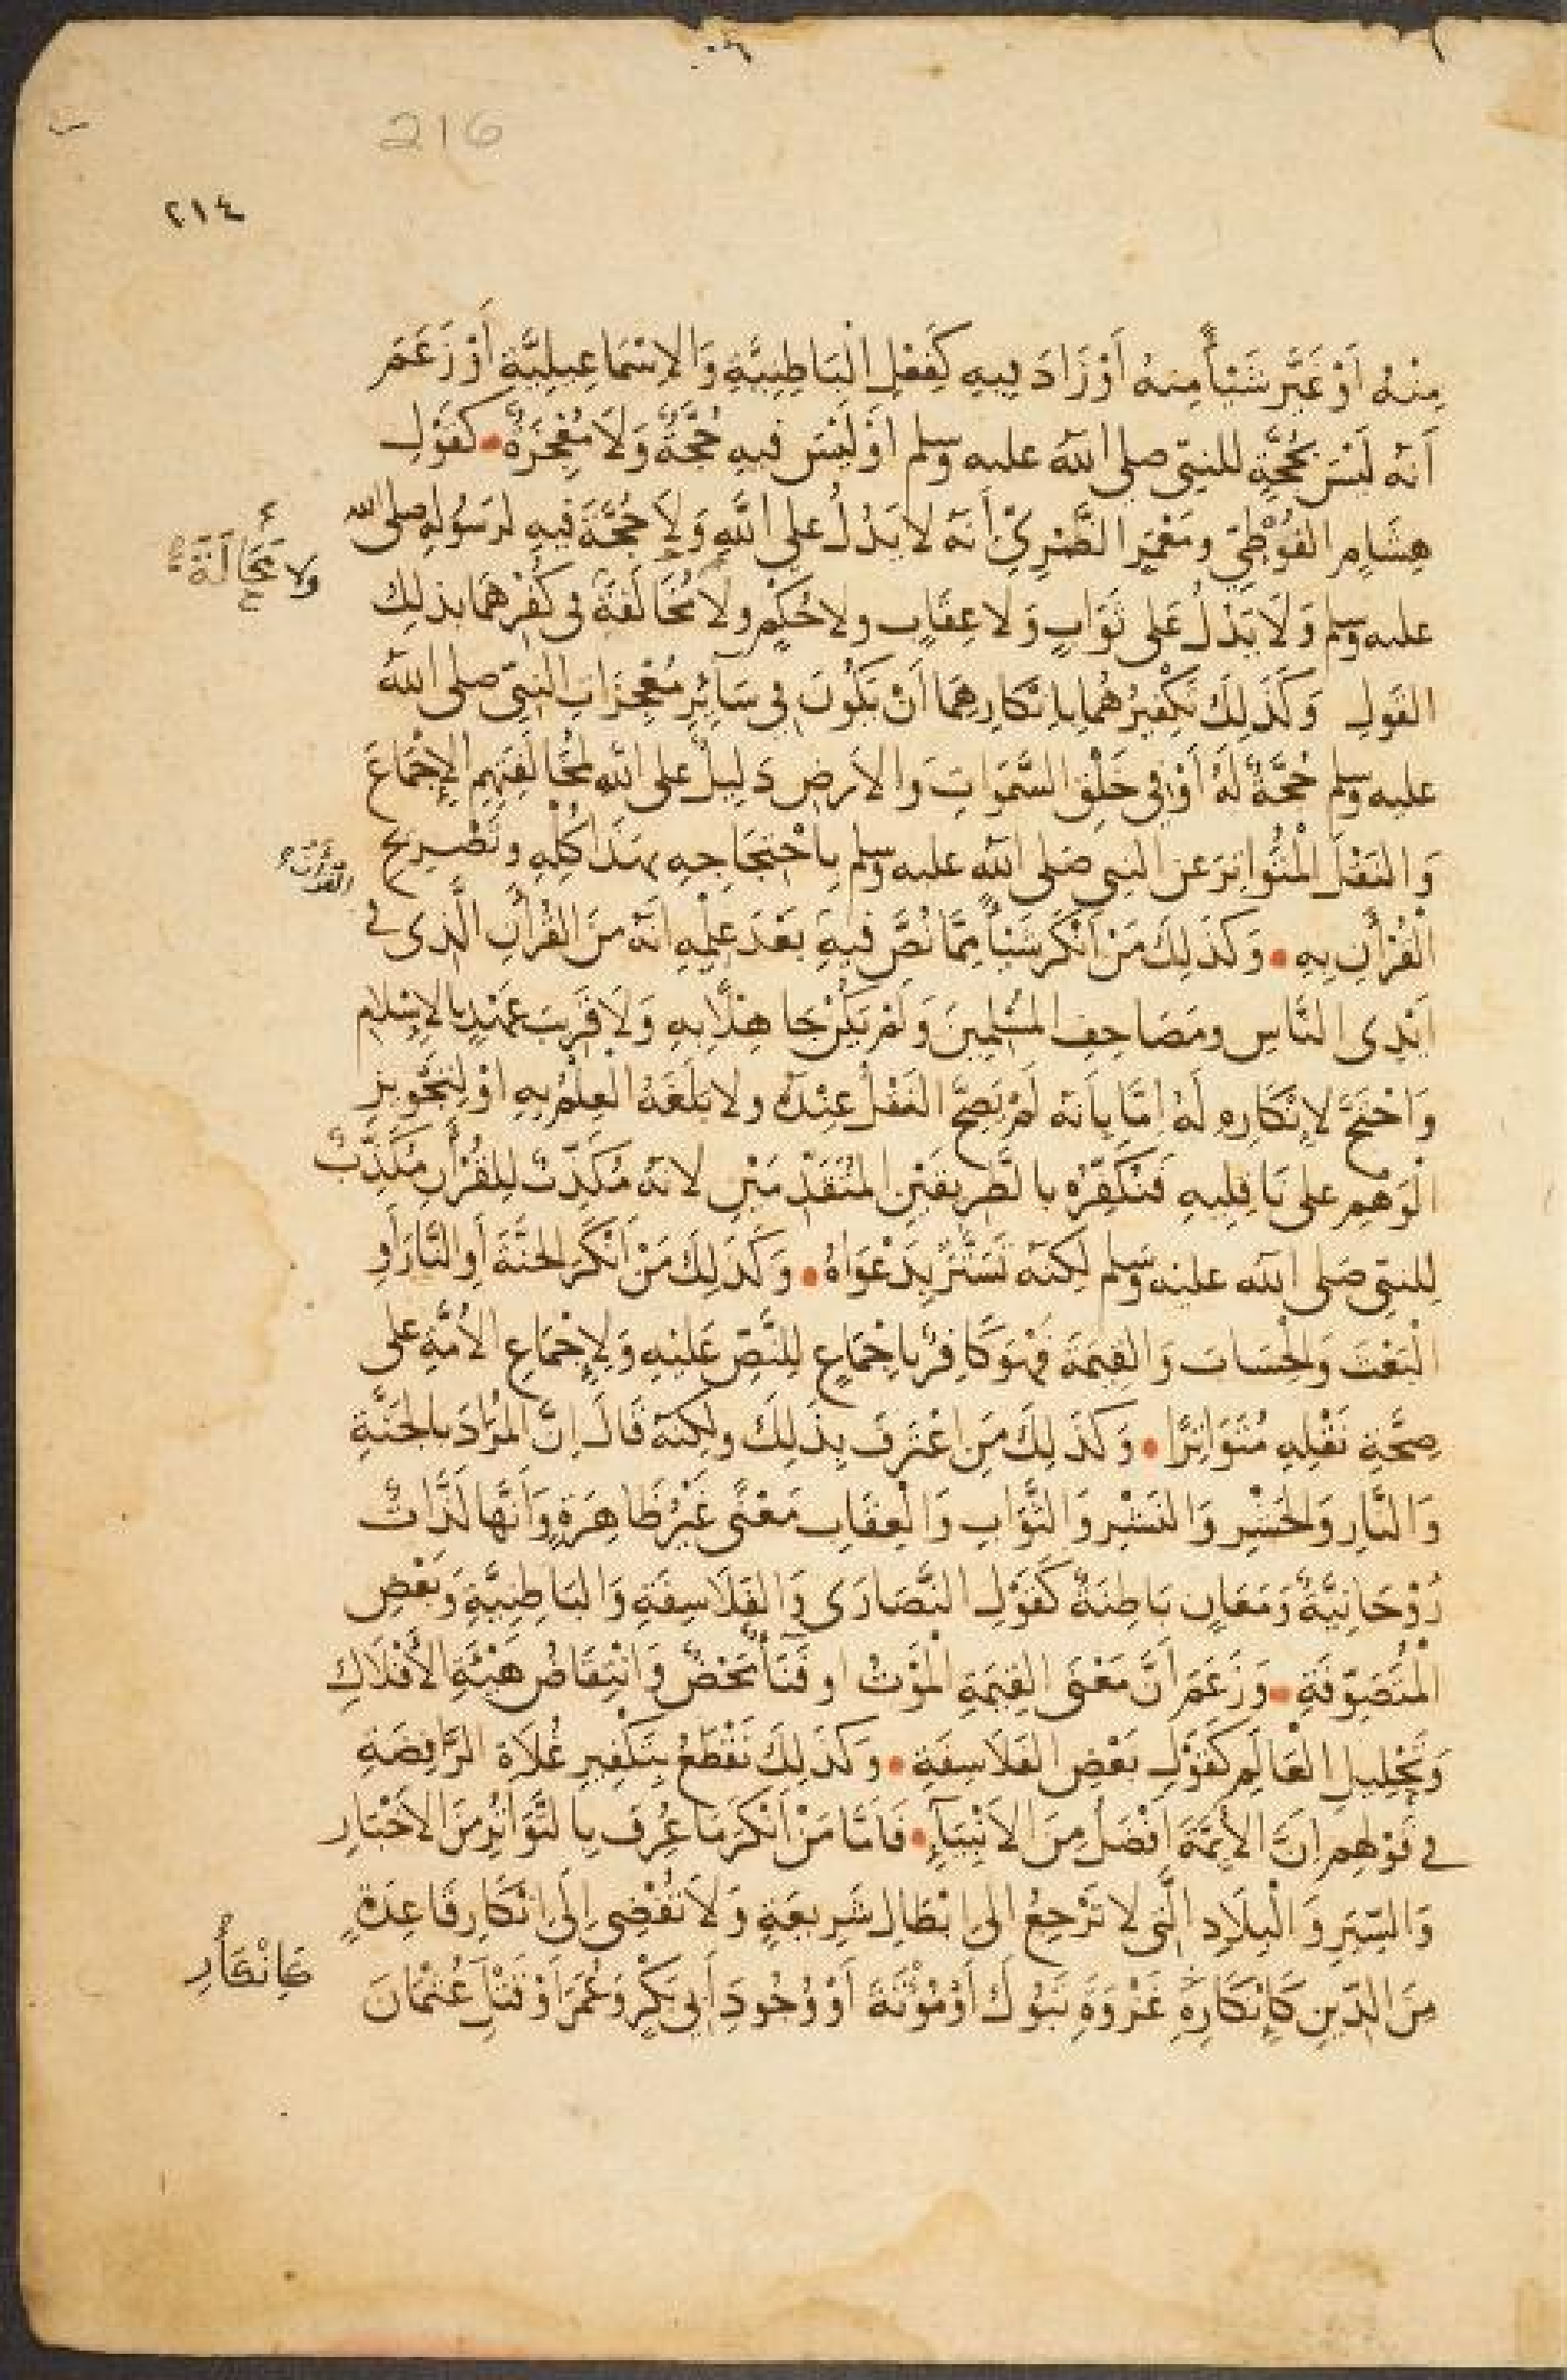 216
٢١٤
مِنْهُ اَوْ غَيَّرَ شَيْأً مِنهُ أَوْ زَادَ فِيهِ كَفِعْلِ الْبَاطِنِيَّةِ وَالاِسْمَاعِيلِيَّةِ أَوْ زَعَمَ
أَنهُ لَيْسَ بِحُجَّةٍ للنبيّ صلى الله عليه وسلم اَوْ لَيْسَ فيهِ حُجَّةٌ وَلَا مُعْجِزَةٌ • كَقَوْلِ
هِشَامِ الفُوَطِيّ ومَعْمَرٍ الصَّيْمَرِيّ أَنهُ لا يَدُلُّ على اللهِ وَلَا حُجَّةَ فيهِ لرَسُولِهِ صلى الله
ولا مُخَالَفَةً
عليه وسلم وَلَا يَدُلُّ عَلى ثَوَابٍ وَلا عِقَابٍ ولا حُكْمٍ ولا مُخَالَفَةً فى كُفْرِهِمَا بذلِكَ
القَولِ وَكَذَلِكَ تَكْفِيرُهُمَا بِاِنْكارِهِمَا أَنْ يَكُونَ فِي سَائِرِ مُعْجِزَاتِ النبيّ صلى الله
عليه وسلم حُجَّةٌ لَهُ أَوْ في خَلْقِ السَّمَوَاتِ وَالارضِ دَلِيلٌ على اللهِ لمُخالَفَتِهِم الإِجْمَاعَ
وَالنَقْلَ الْمُتَوَاتِرَ عَن النبي صَلى الله عليه وسلم بِاحْتِجَاجِهِ بهَذَا كُلِّهِ وتَصْرِيحِ
القرأن
الْقُرْأَنِ بِهِ • وَكَذلِكَ مَنْ اَنْكَرَ شَيْأً مِمَّا نُصَّ فيهِ بَعْدَ عِلْمِهِ اَنّهُ مِنَ القُرْأنِ الَّذى فى
اَيْدِى النَّاسِ ومَصَاحِفِ المُسْلِمِينَ وَلَمْ يَكُنْ جَاهِلًا بِهِ وَلَا قَرِيبَ عَهْدٍ بالاِسْلامِ
وَاحْتَجَّ لاِنْكارِهِ لَهُ اِمَّا بِاَنهُ لَمْ يَصِحَّ النَقْلُ عِنْدَهُ ولا بَلَغَهُ الْعِلْمُ بِهِ اوْ لِتَجْوِيزِ
الْوَهْمِ على نَاقِلِيهِ فَنُكَفِّرُهُ بالطَّرِيقَيْنِ المُتَقَدِّمَيْنِ لانهُ مُكَذِّبٌ لِلقُرْأنِ مُكَذِّبٌ
لِلنبيّ صَلى الله عليه وسلم لكِنّهُ تَسَتَّرَ بِدَعْوَاهُ • وَكَذلِكَ مَنْ اَنْكَرَ الجَنَّةَ أوِ النَّارَ أَوِ
الْبَعْثَ وَالْحِسَابَ وَالقِيمَةَ فَهُوَ كَافِرٌ بِاِجْمَاعٍ لِلنَّصّ عَليْهِ وَلإِجْمَاعِ الأُمَّةِ على
صِحَّةِ نَقْلِهِ مُتَوَاتِرًا • وَكَذلِكَ مَنِ اعْتَرَفَ بِذلِكَ ولكِنهُ قَالَ اِنَّ المُرَادَ بِالجَنَّةِ
وَالنَّارِ وَالحَشْرِ وَالنَشْرِ وَالثَّوَابِ وَالْعِقَابِ مَعْنًى غَيْرُ ظَاهِرَةٍ وَاَنَّها لَذَّاتٌ
رُوْحَانِيَّةٌ وَمَعَانٍ بَاطِنَةٌ كَقَوْلِ النَّصَارَى وَالفَلَاسِفَةِ وَالبَاطِنِيَّةِ وَبَعْضِ
الْمُتَصَوّفَةِ • وَزَعَمَ اَنَّ مَعْنَى القِيمَةِ الْمَوْتُ او فَنَاءٌ مَحْضٌ وَانْتِقَاضُ هَيْئَةِ الأَفْلَاكِ
وَتَحْلِيلِ العَالَمِ كَقَوْلِ بَعْضِ الفَلاسِفَةِ • وَكَذلِكَ نَقْطَعُ بِتَكْفِيرِ غُلَاةِ الرَّافِضَةِ
فى قَوْلِهِم اِنَّ الأَيِمّةَ اَفْضَلُ مِنَ الاَنْبِيَآءِ • فَاَمَّا مَنْ اَنْكَرَ مَا عُرِفَ بِالتَّوَاتُرِ مِنَ الاَخْبَارِ
وَالسِّيَرِ وَالْبِلَادِ الَّتى لا تَرْجِعُ الى اِبْطَالِ شَرِيعَةٍ وَلَا تُفْضِى اِلَى اِنْكارِ قَاعِدَةٍ
كَاِنْكَارِ
مِنَ الدِّينِ كَاِنْكَارِهِ غَزْوَةِ تَبُوكَ أَوْ مُؤْتَةَ أَوْ وُجُودِ أَبى بَكْرٍ وَعُمَرَ أَوْ قَتْلِ عُثْمَانَ